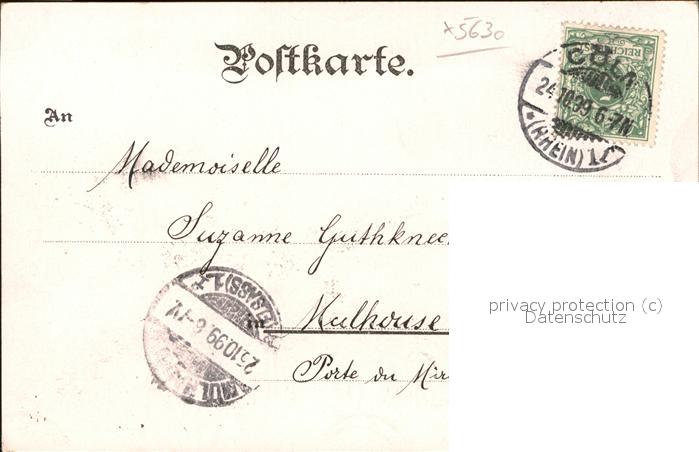 *5630
Postkarte.
REICHSPOST
CÖLN
24.10.99 6-7N
*(RHEIN)1r
An
Mademoiselle
Suzanne Guthknec
in Mulhouse
Porte du Mir
(ELSASS)1
25.10.99. 6-7V.
MÜL
privacy protection (c)
Datenschutz